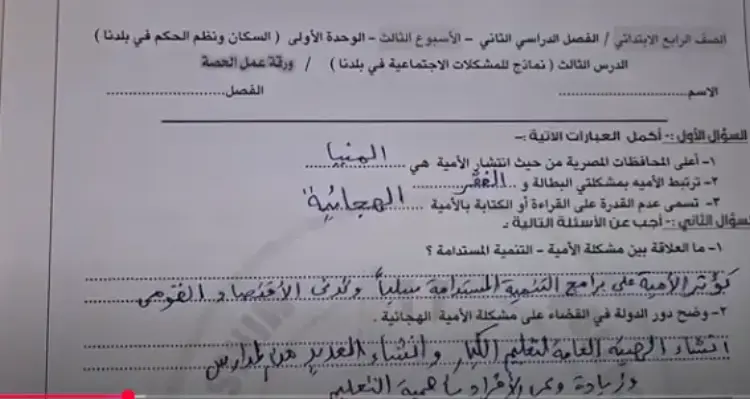 الصف الرابع الابتدائي / الفصل الدراسي الثاني - الأسبوع الثالث - الوحدة الأولى ( السكان ونظم الحكم في بلدنا )
الدرس الثالث ( نماذج للمشكلات الاجتماعية في بلدنا ) / ورقة عمل الحصة
الاسم........................ الفصل........................
السؤال الأول :- أكمل العبارات الاتية :-
١- أعلى المحافظات المصرية من حيث انتشار الأمية هي ... المنيا
٢- ترتبط الأميه بمشكلتي البطالة و .. الفقر
٣- تسمى عدم القدرة على القراءة أو الكتابة بالأمية ..... الهجائية
السؤال الثاني :- أجب عن الأسئلة التالية :-
١- ما العلاقة بين مشكلة الأمية - التنمية المستدامة ؟
تؤثر الأمية على برامج التنمية المستدامة سلبياً وتدنى الأقتصاد القومى
٢- وضح دور الدولة في القضاء على مشكلة الأمية الهجائية .
انشاء الهيئة العامة لتعليم الكبار وانشاء العديد من المدارس
وزيادة وعى الأفراد بأهمية التعليم